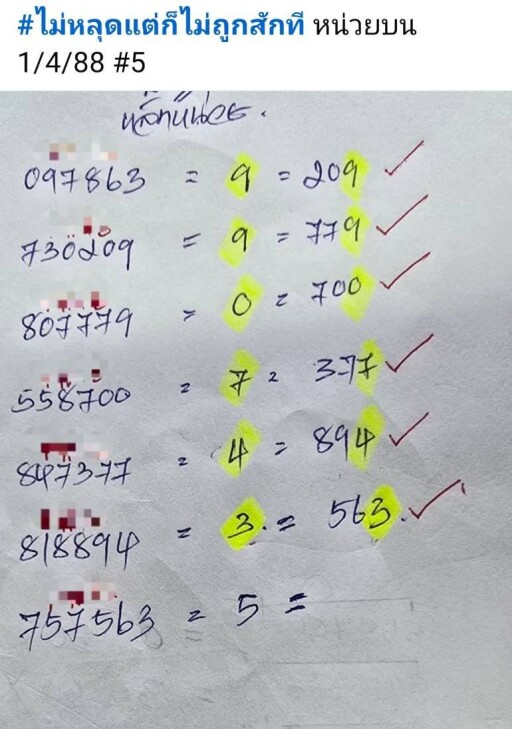 #ไม่หลุดแต่ก็ไม่ถูกสักที หน่วยบน
1/4/88 #5
097863 = 9 = 209
730209 = 9 = 779
807779 = 0 = 700
558700 = 7 = 377
847377 = 4 = 894
818894 = 3 = 563
757563 = 5 =